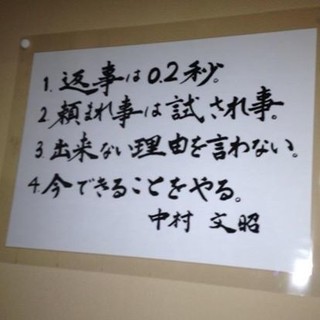 1. 返事は0.2秒。
2 頼まれ事は試され事。
3. 出来ない理由を言わない。
4. 今できることをやる。
中村 文昭